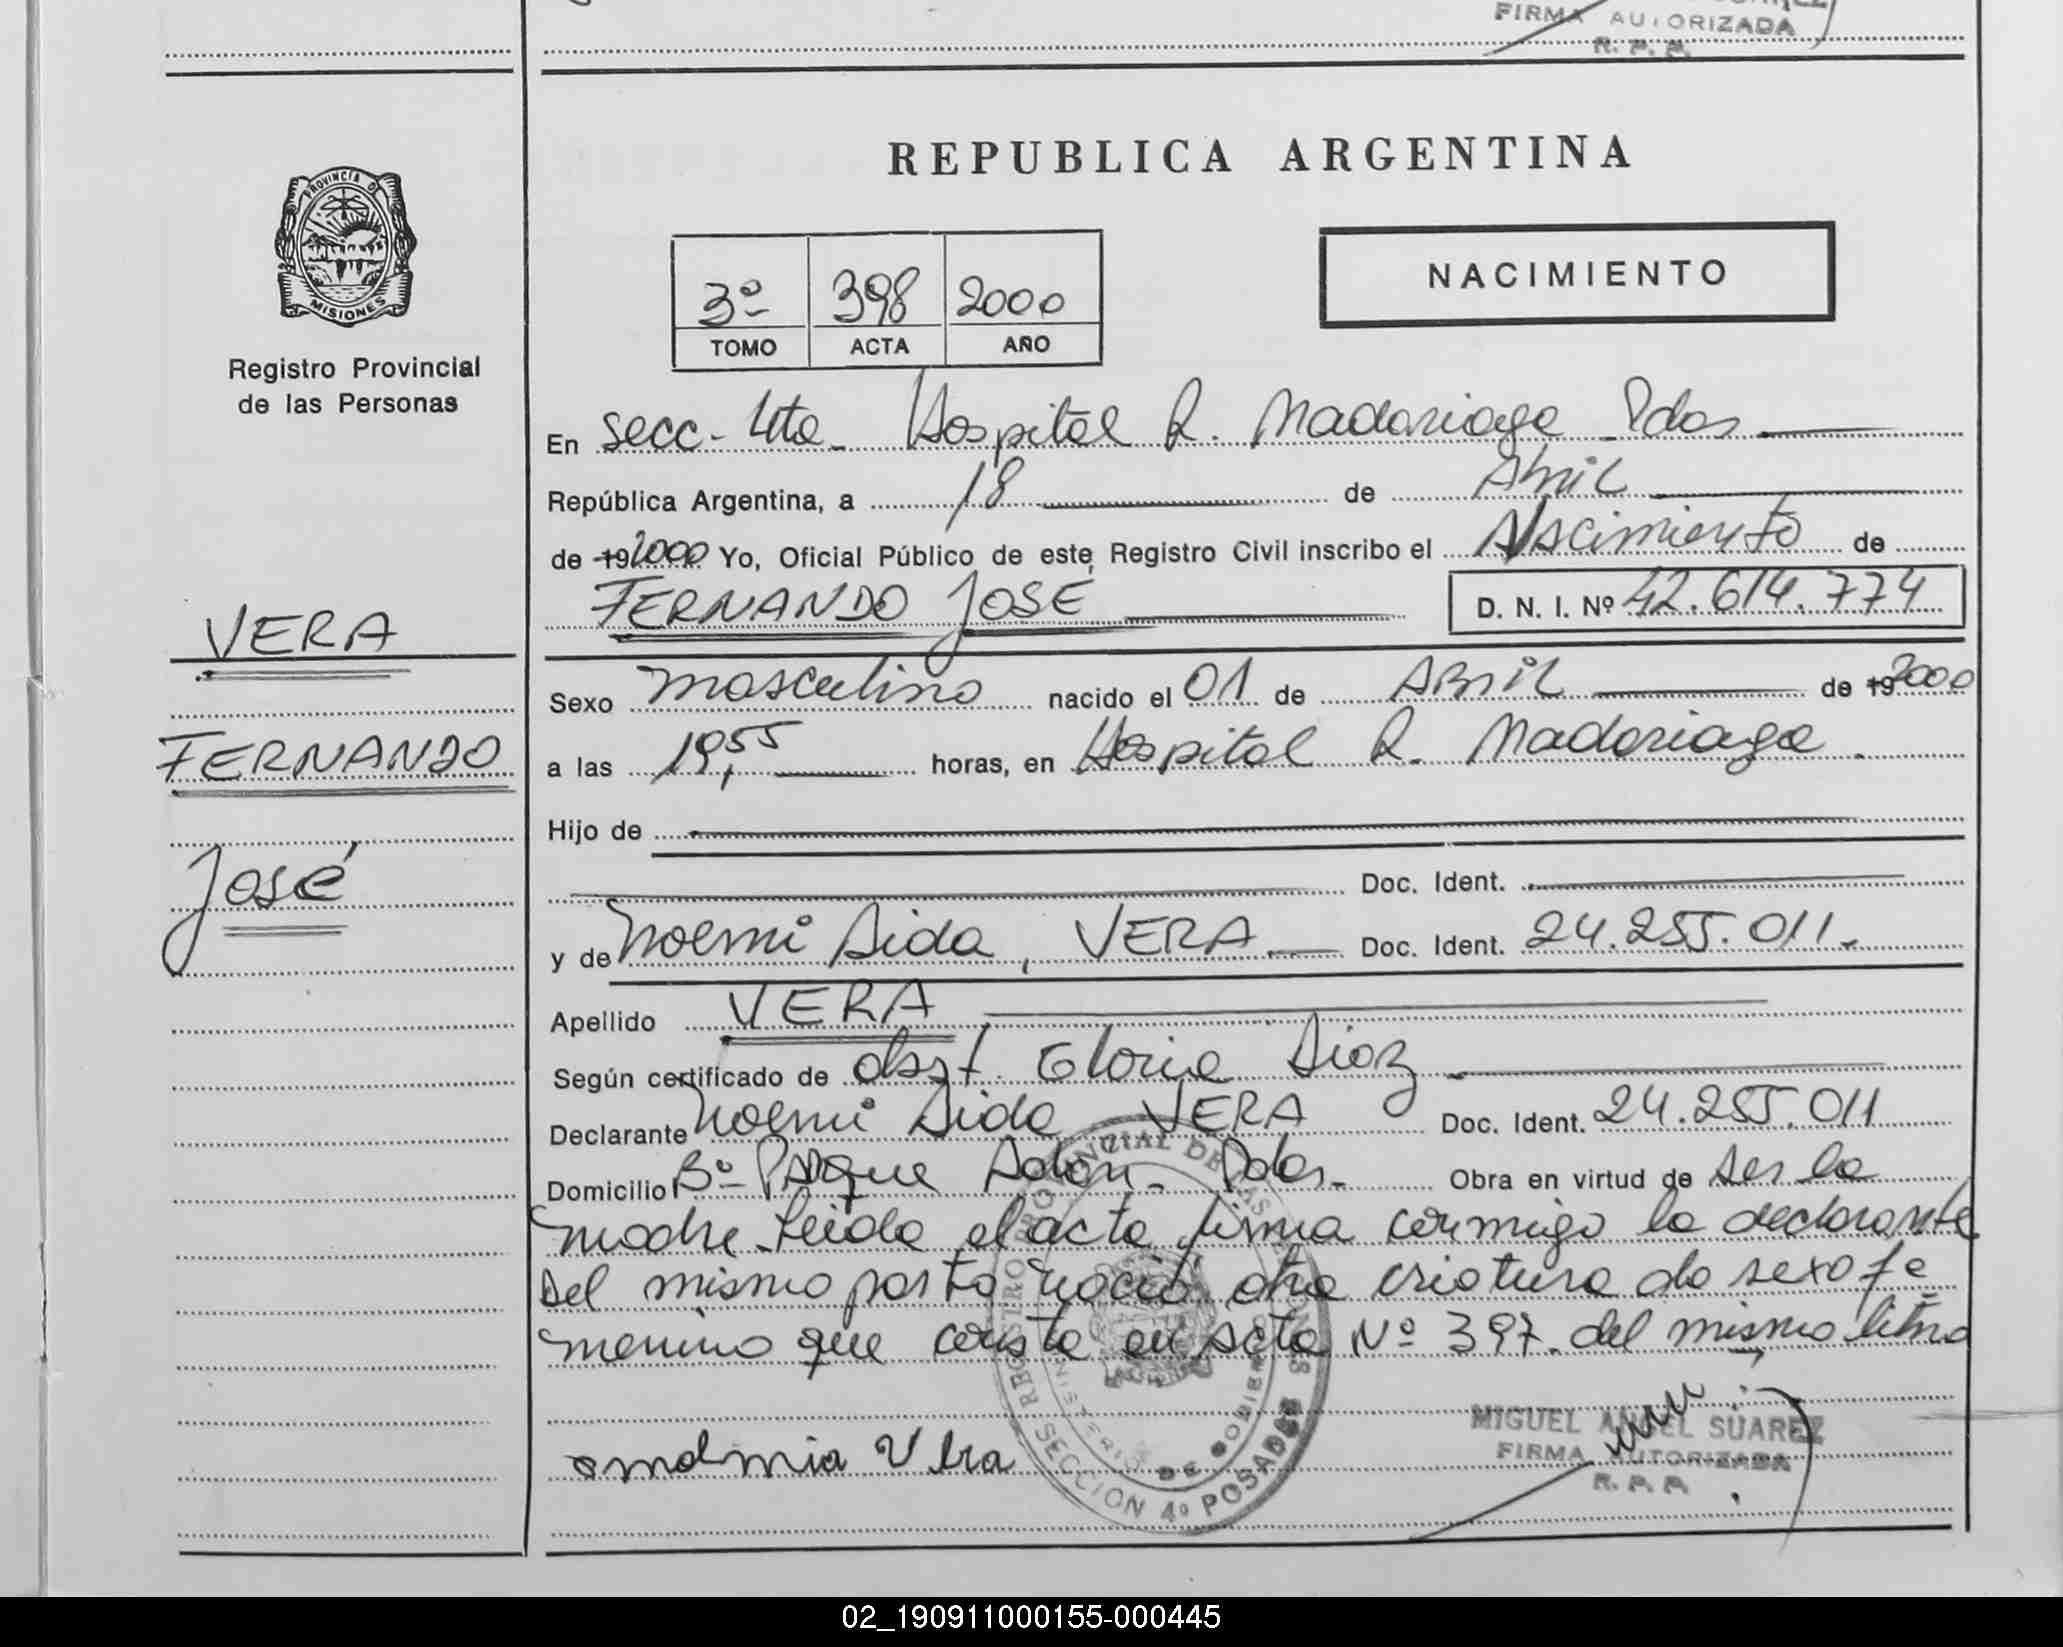 FIRMA AUTORIZADA
R. P. P.
PROVINCIA DE
MISIONES
Registro Provincial
de las Personas
VERA
FERNANDO
José
REPUBLICA ARGENTINA
NACIMIENTO
3º 398 2000
TOMO ACTA AÑO
En secc. 4ta. Hospital R. Madariaga Pdas
República Argentina, a 18 de Abril
de 19 2000 Yo, Oficial Público de este Registro Civil inscribo el Nacimiento de
FERNANDO JOSÉ D. N. I. Nº 42.614.774
Sexo masculino nacido el 01 de Abril de 19 2000
a las 19,55 horas, en Hospital R. Madariaga.
Hijo de
Doc. Ident.
y de Noemi Aida, VERA Doc. Ident. 24.255.011.
Apellido VERA
Según certificado de obst. Gloria Diaz
Declarante Noemi Aida VERA Doc. Ident. 24.255.011
Domicilio Bº Parque Adam. Pdas. Obra en virtud de ser la
madre. Leida el acta firma conmigo la declarante
Del mismo parto nació otra criatura de sexo fe
menino que consta en acta Nº 397. del mismo libro
Vera
REGISTRO PROVINCIAL DE LAS PERSONAS
MINISTERIO DE GOBIERNO
SECCION 4º POSADAS
MIGUEL ANGEL SUAREZ
FIRMA AUTORIZADA
R. P. P.
02_190911000155-000445